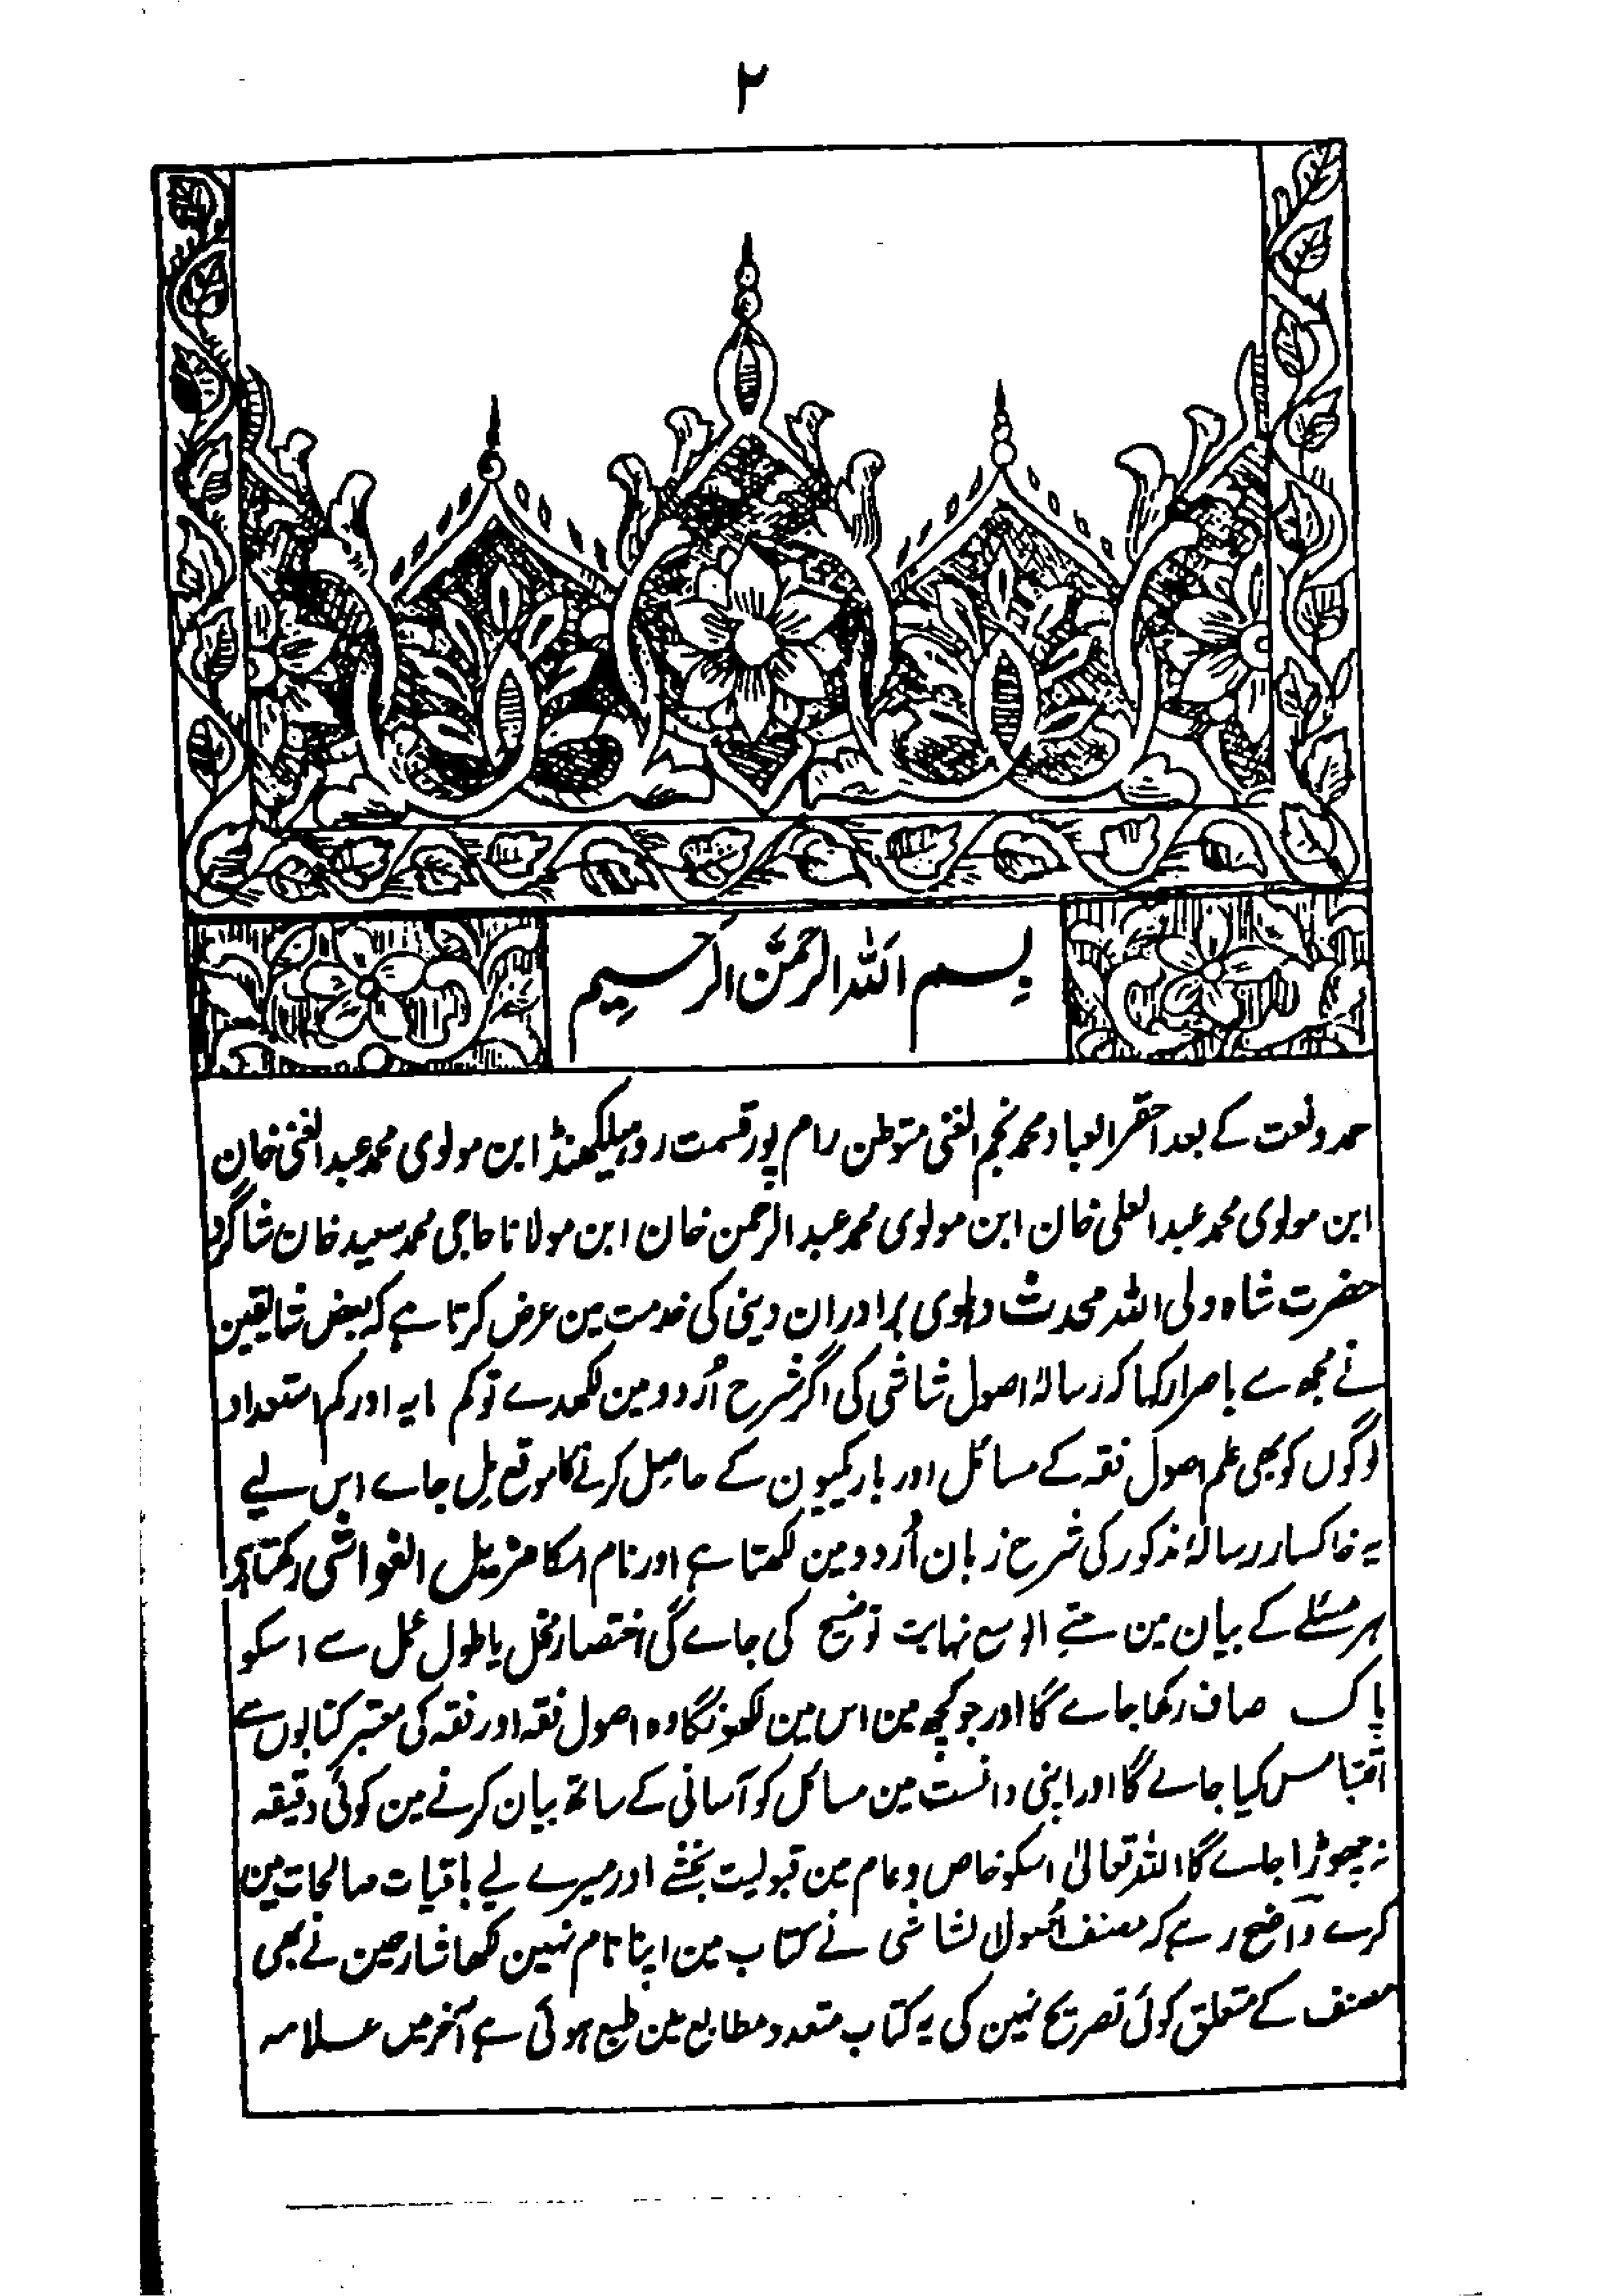 ۲
بسم اللہ الرحمٰن الرحیم
حمد و نعت کے بعد احقر العباد محمد نجم الغنی متوطن رام پور قسمت روہیلکھنڈ ابن مولوی محمد عبد الغنی خان
ابن مولوی محمد عبد العلی خان ابن مولوی محمد عبد الرحمن خان ابن مولانا حاجی محمد سعید خان شاگرد
حضرت شاہ ولی اللہ محدث دہلوی برادران دینی کی خدمت مین عرض کرتا ہے کہ بعض شایقین
نے مجھ سے باصرار کہا کہ رسالۂ اصول شاشی کی اگر شرح اُردو مین لکھدے تو کم مایہ اور کم استعداد
لوگوں کو بھی علم اصول فقہ کے مسائل اور باریکیون کے حاصل کرنے کا موقع مِل جاے اس لیے
یہ خاکسار رسالۂ مذکور کی شرح زبان اُردو مین لکھتا ہے اور نام اسکا مزیل الغواشی رکھتا ہی
ہر مسئلے کے بیان مین حتے الوسع نہایت توضیح کی جاے گی اختصار مخل یا طول ممل سے اسکو
پاک صاف رکھا جاے گا اور جو کچھ مین اس مین لکھونگا وہ اصول فقہ اور فقہ کی معتبر کتابوں سے
اقتباس کیا جاے گا اور اپنی دانست مین مسائل کو آسانی کے ساتھ بیان کرنے مین کوئی دقیقہ
نہ چھوڑا جاے گا اللہ تعالیٰ اسکو خاص و عام مین قبولیت بخشے اور میرے لیے باقیات صالحات مین
کرے واضح رہے کہ مصنف اُصول الشاشی نے کتاب مین اپنا نام نہین لکھا شارحین نے بھی
مصنف کے متعلق کوئی تصریح نہین کی یہ کتاب متعدد مطابع مین طبع ہوئی ہے آخر میں علامہ